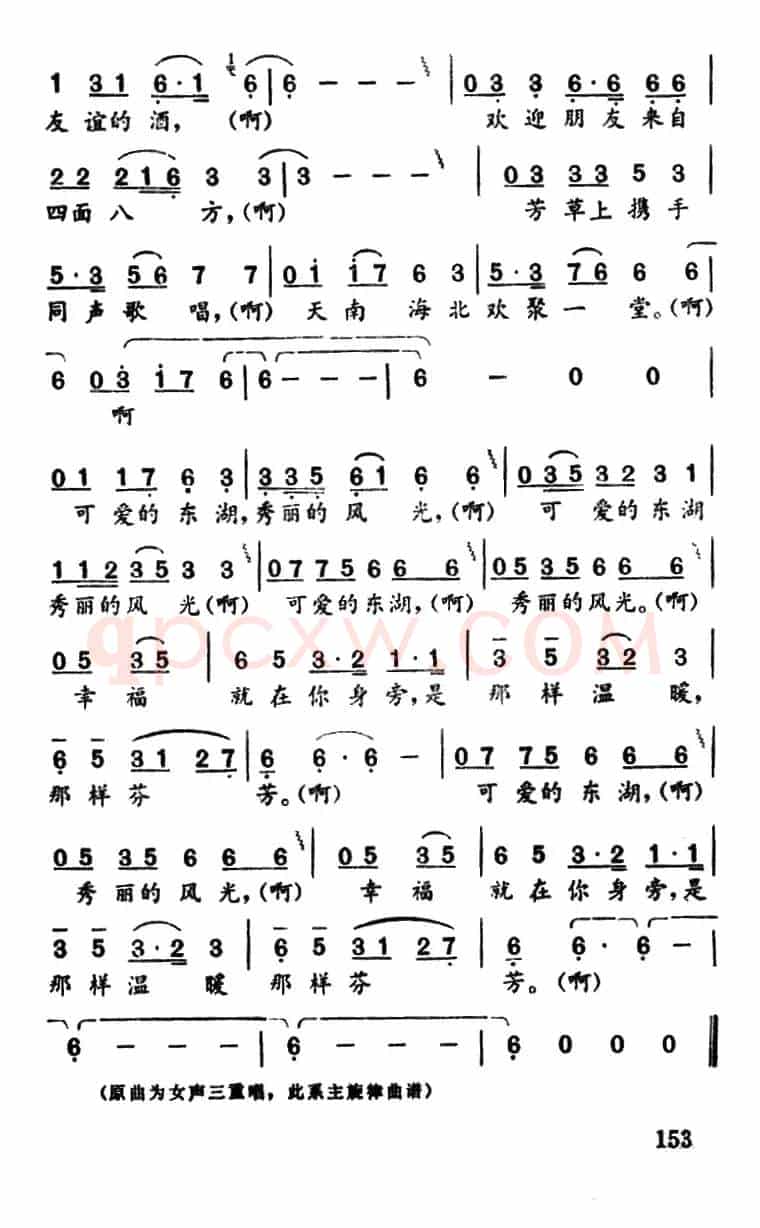 1 31 6·1 6|6 - - - |03 3 6·6 66|
友谊的酒，(啊) 欢迎朋友来自
22 216 3 3|3 - - - |03 33 5 3|
四面八 方，(啊) 芳草上携手
5·3 56 7 7|01 17 6 3|5·3 76 6 6|
同声歌 唱，(啊)天南海北欢聚一 堂。(啊)
6 03 17 6|6 - - - |6 - 0 0|
啊
01 17 6 3|335 61 6 6|035 32 3 1|
可爱的东湖，秀丽的风光，(啊) 可爱的东湖
112 35 3 3|07 75 66 6|05 35 66 6|
秀丽的风 光(啊) 可爱的东湖，(啊) 秀丽的风光。(啊)
qpcxw.COM
05 35|6 5 3·2 1·1|3 5 32 3|
幸福 就在你身旁，是 那样温暖，
6 5 31 27|6 6·6 -|07 75 66 6|
那样芬 芳。(啊) 可爱的东湖，(啊)
05 35 6 6 6|05 35|6 5 3·2 1·1|
秀丽的风光，(啊) 幸福 就在你身旁，是
3 5 3·2 3|6 5 31 27|6 6·6 -|
那样温 暖 那样芬 芳。(啊)
6 - - - |6 - - - |6 0 0 0‖
(原曲为女声三重唱，此系主旋律曲谱)
153